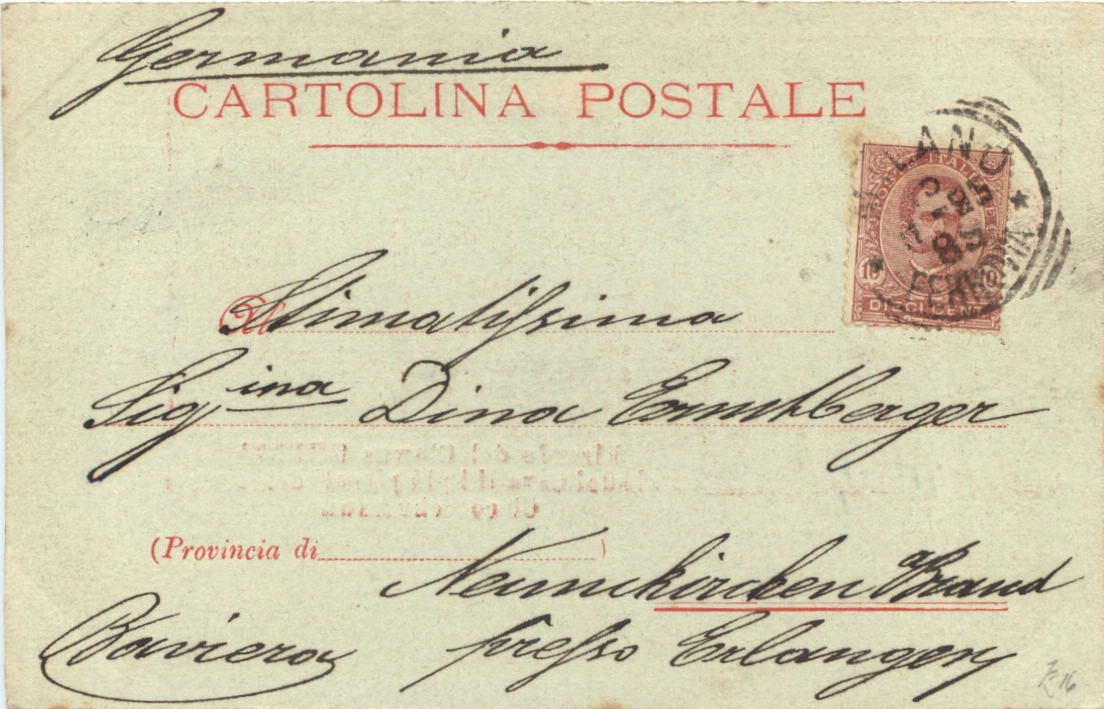 Germania
CARTOLINA POSTALE
MILANO
FERROVIA
POSTE ITALIANE
10
DIECI CENT
A Stimatissima
Sig.ina Dina Ernstberger
(Provincia di )
Neunkirchen Brand
Baviera presso Erlangen